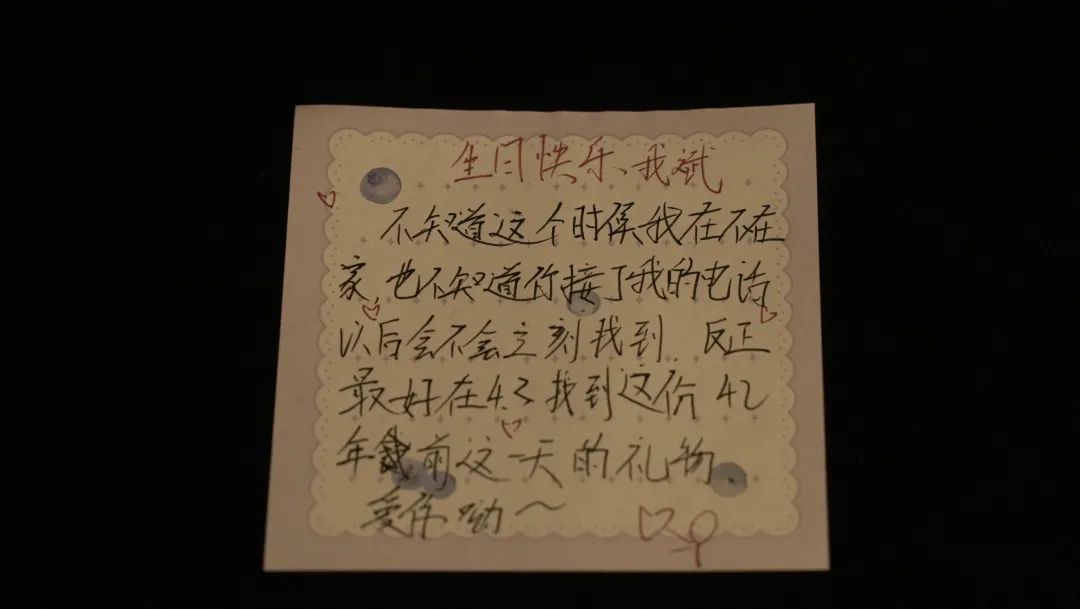 生日快乐、我斌
不知道这个时候我在不在
家,也不知道你接了我的电话
以后会不会立刻找到.反正
最好在4.3找到这份42
年前这一天的礼物.
爱你呦~